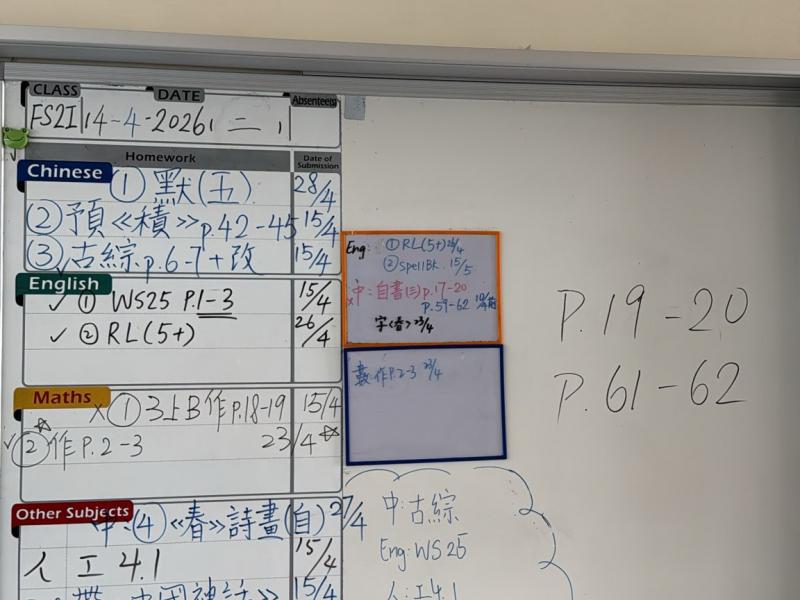 CLASS DATE Absentees
FS2I 14-4-2026 二
Homework Date of Submission
Chinese ① 默(五) 28/4
② 預《積》p.42-45 15/4
③ 古綜p.6-7+改 15/4
English
✓ ① WS25 P.1-3 15/4
✓ ② RL(5+) 26/4
Maths
x ① 3上B作p.18-19 15/4
✓ ② 作P.2-3 23/4
Other Subjects
中:④《春》詩畫(自) 27/4
人 工4.1 15/4
15/4
Eng: ① RL(5+) 24/4
② SpellBk. 15/5
x中:自書(三)p.17-20
p.59-62
字《春》23/4
數:作P.2-3 23/4
P.19-20
P.61-62
中:古綜
Eng:WS25
人:工4.1